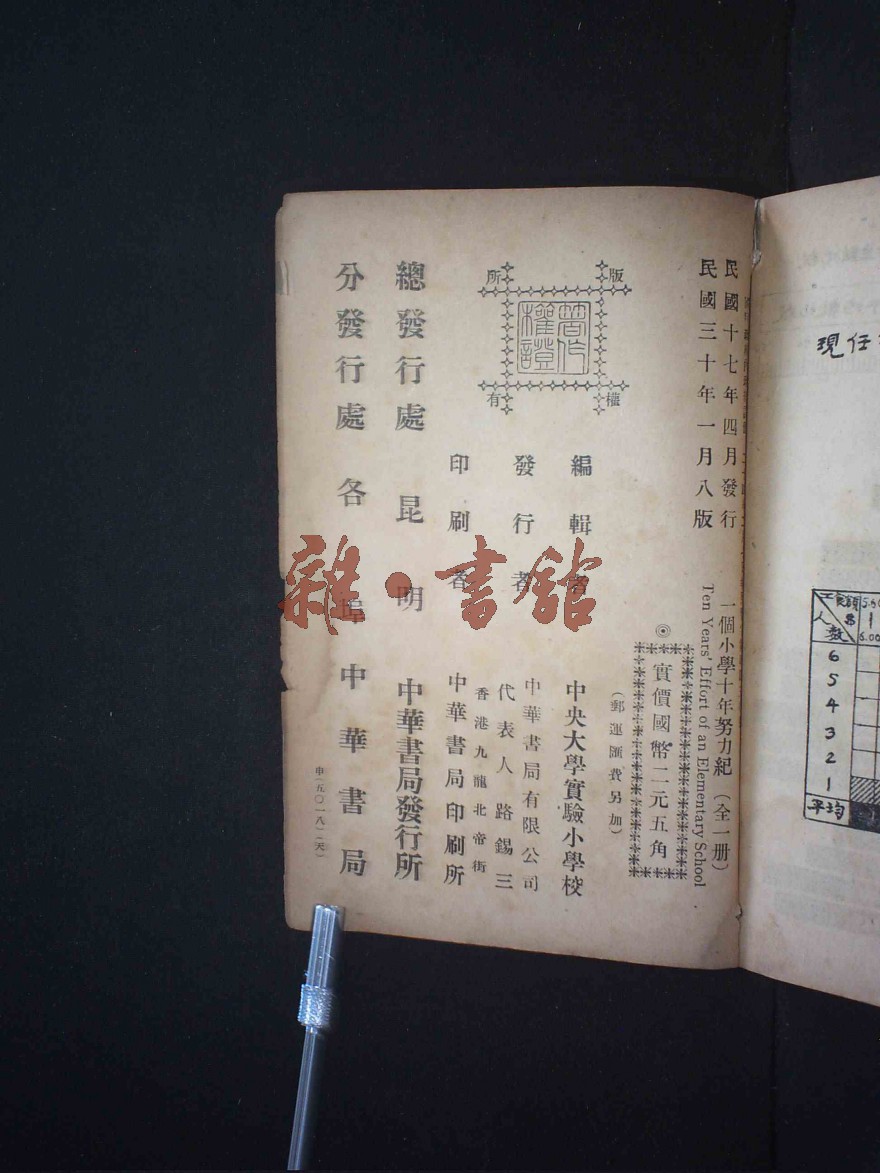 民國十七年四月發行
民國三十年一月八版
一個小學十年努力紀（全一册）
Ten Years' Effort of an Elementary School
◎實價國幣二元五角
（郵運匯費另加）
版權所有
著作權證
編輯者 中央大學實驗小學校
發行者 中華書局有限公司
代表人 路錫三
印刷者 香港九龍北帝街
中華書局印刷所
總發行處 昆明 中華書局發行所
分發行處 各埠 中華書局
申（五〇一八）（天）
雜·書館
現任
工 人數
$
1
6.00
6
5
4
3
2
1
平均